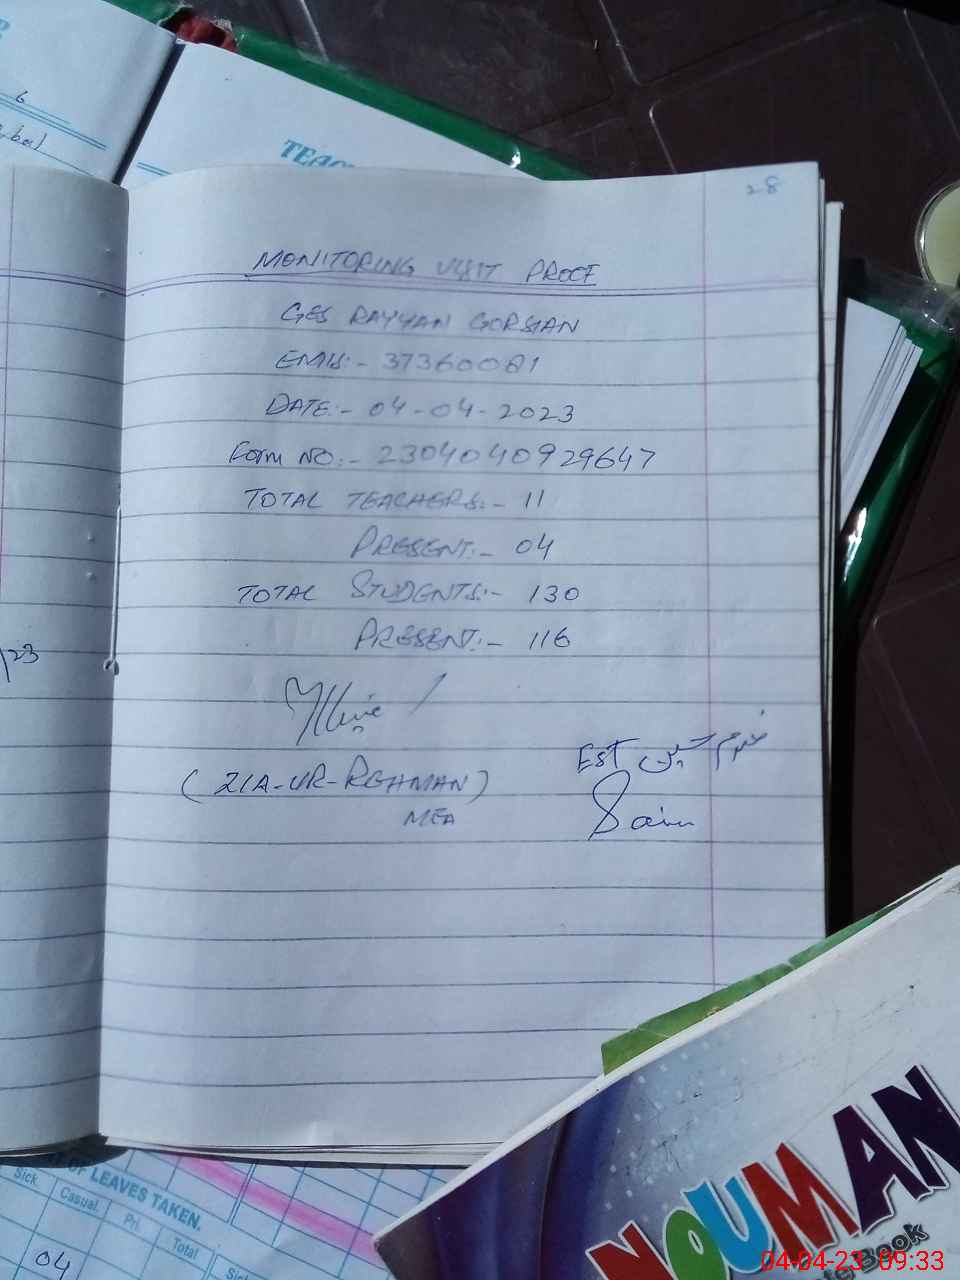 28
MONITORING VISIT PROOF
GES RAYYAN GORSIAN
EMIS:- 37360081
DATE:- 04-04-2023
Form NO:- 2304040929647
TOTAL TEACHERS:- 11
PRESENT:- 04
TOTAL STUDENTS:- 130
PRESENT:- 116
(ZIA-UR-REHMAN)
MEA
EST خرم حسین
/23
TEAC
OF LEAVES TAKEN.
Sick
Casual.
Pri.
Total
Sick
04
NOUMAN
Book
04-04-23 09:33